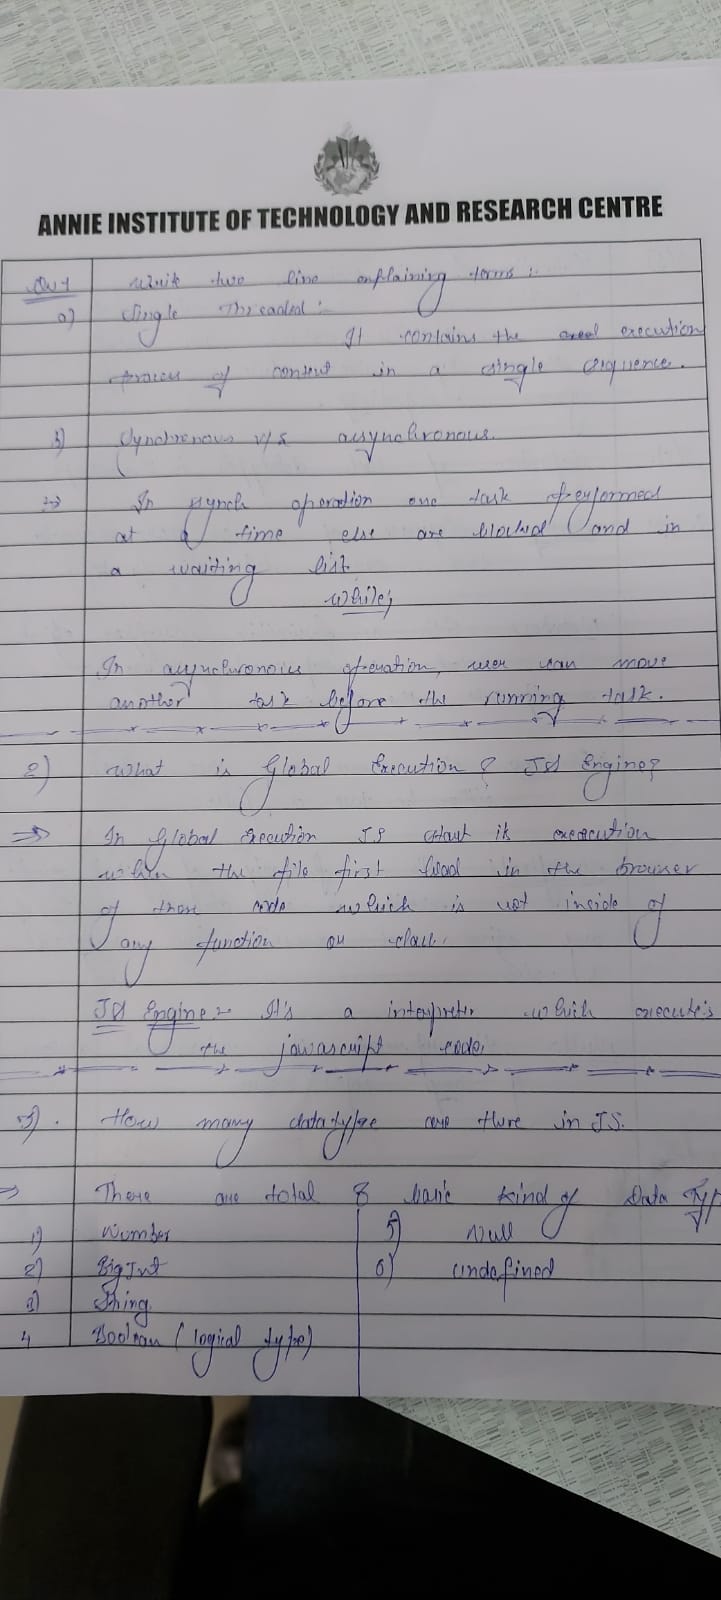 ANNIE INSTITUTE OF TECHNOLOGY AND RESEARCH CENTRE
Qu 1 Write two line explaining terms :
a) Single Threaded :
It contains the execution
process of in a single sequence.
b) Synchronous v/s asynchronous.
=> In synch operation one task performed
at a time else are blocked and in
a waiting list.
While;
In asynchronous operation, user can move
another task before the running task.
2) What is Global Execution & JS Engine?
=> In Global Execution JS start it execution
when the file first load in the browser
of those code which is not inside of
any function or class.
JS Engine :- It's a interpreter which execute's
the javascript code.
3). How many datatype are there in JS.
=> There are total 8 basic kind of Data Typ
1) Number 5) Null
2) BigInt 6) undefined
3) String
4 Boolean (logical type)